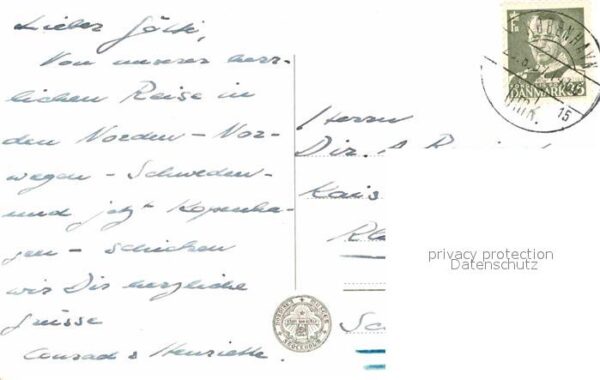 Lieber Götti,
Von unserer herr-
lichen Reise in
den Norden – Nor-
wegen – Schweden –
und jetzt Kopenha-
gen – schicken
wir Dir herzliche
Grüsse
Conrad & Henriette.
Herrn
Dir. A.
KØBENHAVN
OMK.
15
DANMARK
privacy protection
Datenschutz
STOCKHOLM